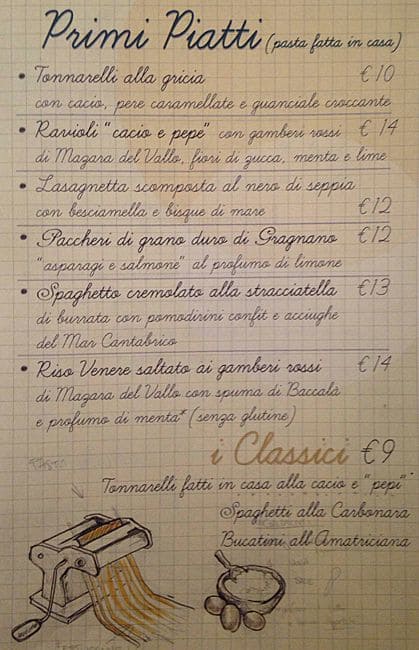 Primi Piatti (pasta fatta in casa)
• Tonnarelli alla gricia €10
con cacio, pere caramellate e guanciale croccante
• Ravioli "cacio e pepe" con gamberi rossi € 14
di Mazara del Vallo, fiori di zucca, menta e lime
• Lasagnetta scomposta al nero di seppia
con besciamella e bisque di mare €12
• Paccheri di grano duro di Gragnano €12
"asparagi e salmone" al profumo di limone
• Spaghetto cremolato alla stracciatella €13
di burrata con pomodirini confit e acciughe
del Mar Cantabrico
• Riso Venere saltato ai gamberi rossi €14
di Mazara del Vallo con spuma di Baccalà
e profumo di menta* (senza glutine)
i Classici €9
Tonnarelli fatti in casa alla cacio e "pepi"
Spaghetti alla Carbonara
Bucatini all'Amatriciana